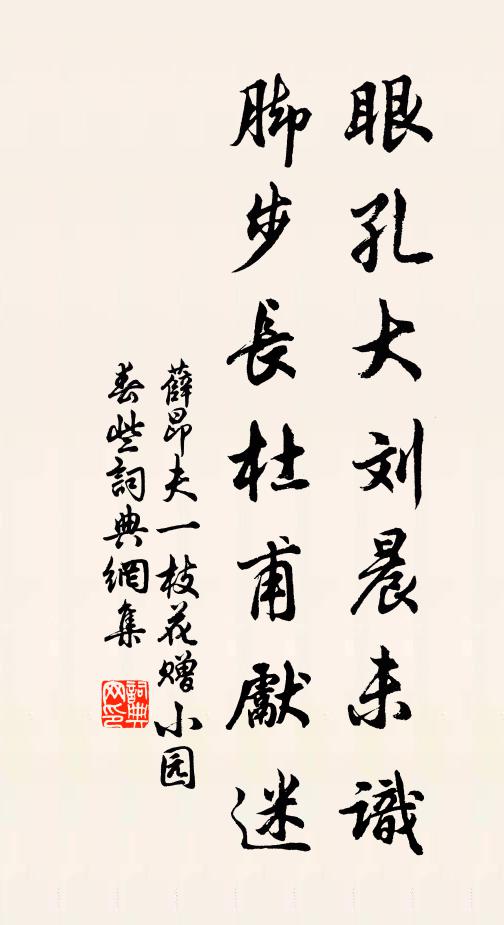 眼孔大刘晨未識
脚步長杜甫獻迷
薛昂夫一枝花赠小园
春些詞典網集
詞典网印